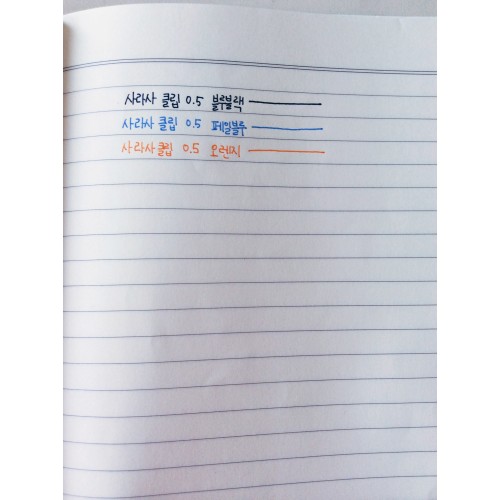 사라사 클립 0.5 블루블랙
사라사 클립 0.5 페일블루
사라사 클립 0.5 오렌지